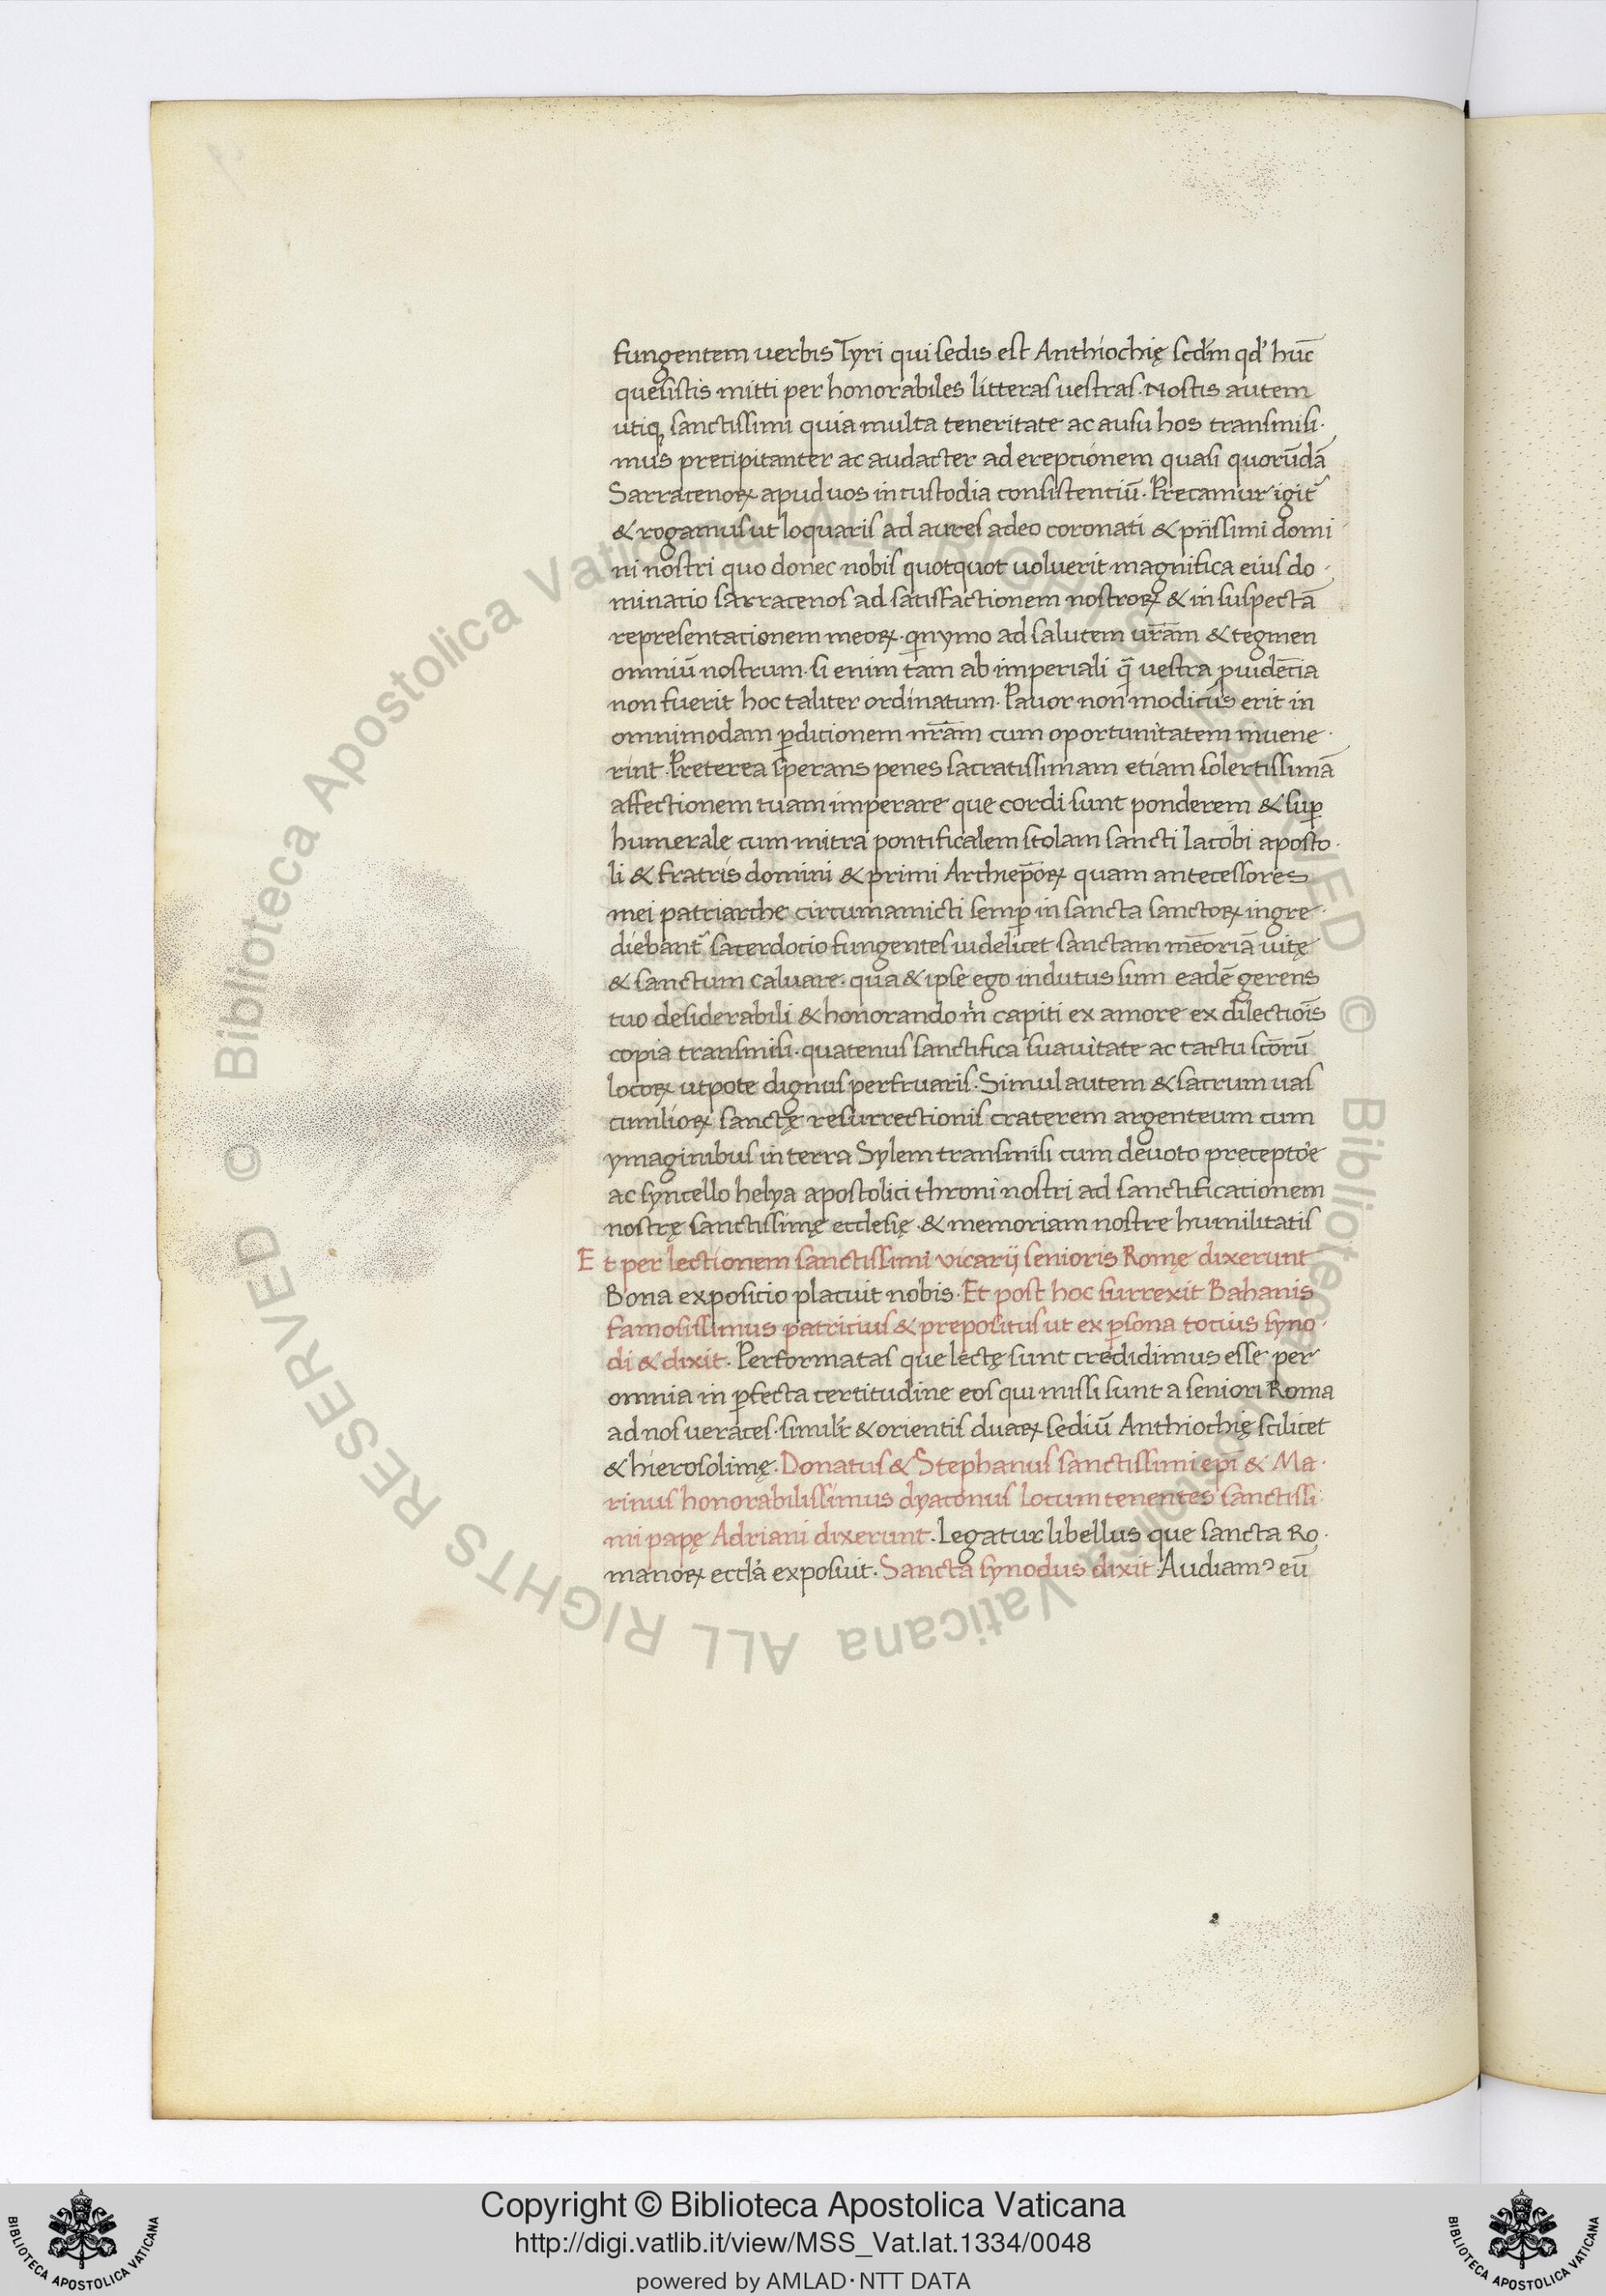 fungentem uerbis Tyri qui sedis est Anthiochię scdm̄ qd' huc̄
quesistis mitti per honorabiles litteras uestras. Nostis autem
utiq; sanctissimi quia multa teneritate ac ausu hos transmisi·
mus precipitanter ac audacter ad ereptionem quasi quorūdā
Sarracenoꝝ apud uos in custodia consistentiū. Precamur igit̄
& rogamus ut loquaris ad aures adeo coronati & piissimi domi
ni nostri quo donec nobis quotquot uoluerit magnifica eius do·
minatio sarracenos ad satisfactionem nostroꝝ & in suspectā
representationem meoꝝ. qnymo ad salutem ur̄am & tegmen
omniū nostrum. si enim tam ab imperiali q̄ uestra ꝓuidētia
non fuerit hoc taliter ordinatum. Pauor non modicus erit in
omnimodam ꝑditionem nr̄am cum oportunitatem inuene·
rint. Preterea sperans penes sacratissimam etiam solertissimā
affectionem tuam imperare que cordi sunt ponderem & suꝑ
humerale cum mitra pontificalem stolam sancti Iacobi aposto·
li & fratris domini & primi Archiep̄oꝝ quam antecessores
mei patriarche circumamicti semꝑ in sancta sanctoꝝ ingre·
diebant̄ sacerdotio fungentes uidelicet sanctam mēoriā uitę
& sanctum caluare. qua & ipse ego indutus sum eadē gerens
tuo desiderabili & honorando m̄ capiti ex amore ex dilectiōis
copia transmisi. quatenus sanctifica suauitate ac tactu scōrū
locoꝝ utpote dignus perfruaris. Simul autem & sacrum uas
cimilioꝝ sanctę resurrectionis craterem argenteum cum
ymaginibus in terra Sylem transmisi cum deuoto preceptōe
ac syncello helya apostolici throni nostri ad sanctificationem
nostrę sanctissimę ecclesię. & memoriam nostre humilitatis
Et per lectionem sanctissimi vicarij senioris Romę dixerunt
Bona expositio placuit nobis. Et post hoc surrexit Bahanis
famosissimus patritius & prepositus ut ex ꝑsona totius syno·
di & dixit. Performatas que lectę sunt credidimus esse per
omnia in ꝑfecta certitudine eos qui missi sunt a seniori Roma
ad nos ueraces. simil̄r & orientis duaꝝ sediū Anthiochię scilicet
& hierosolimę. Donatus & Stephanus sanctissimi ep̄i & Ma·
rinus honorabilissimus dyaconus locum tenentes sanctissi·
mi papę Adriani dixerunt. Legatur libellus que sancta Ro·
manoꝝ eccl̄a exposuit. Sancta synodus dixit. Audiamꝰ eū
© Biblioteca Apostolica Vaticana ALL RIGHTS RESERVED © Biblioteca Apostolica Vaticana ALL RIGHTS RESERVED
Copyright © Biblioteca Apostolica Vaticana
http://digi.vatlib.it/view/MSS_Vat.lat.1334/0048
powered by AMLAD·NTT DATA
BIBLIOTECA APOSTOLICA VATICANA
BIBLIOTECA APOSTOLICA VATICANA